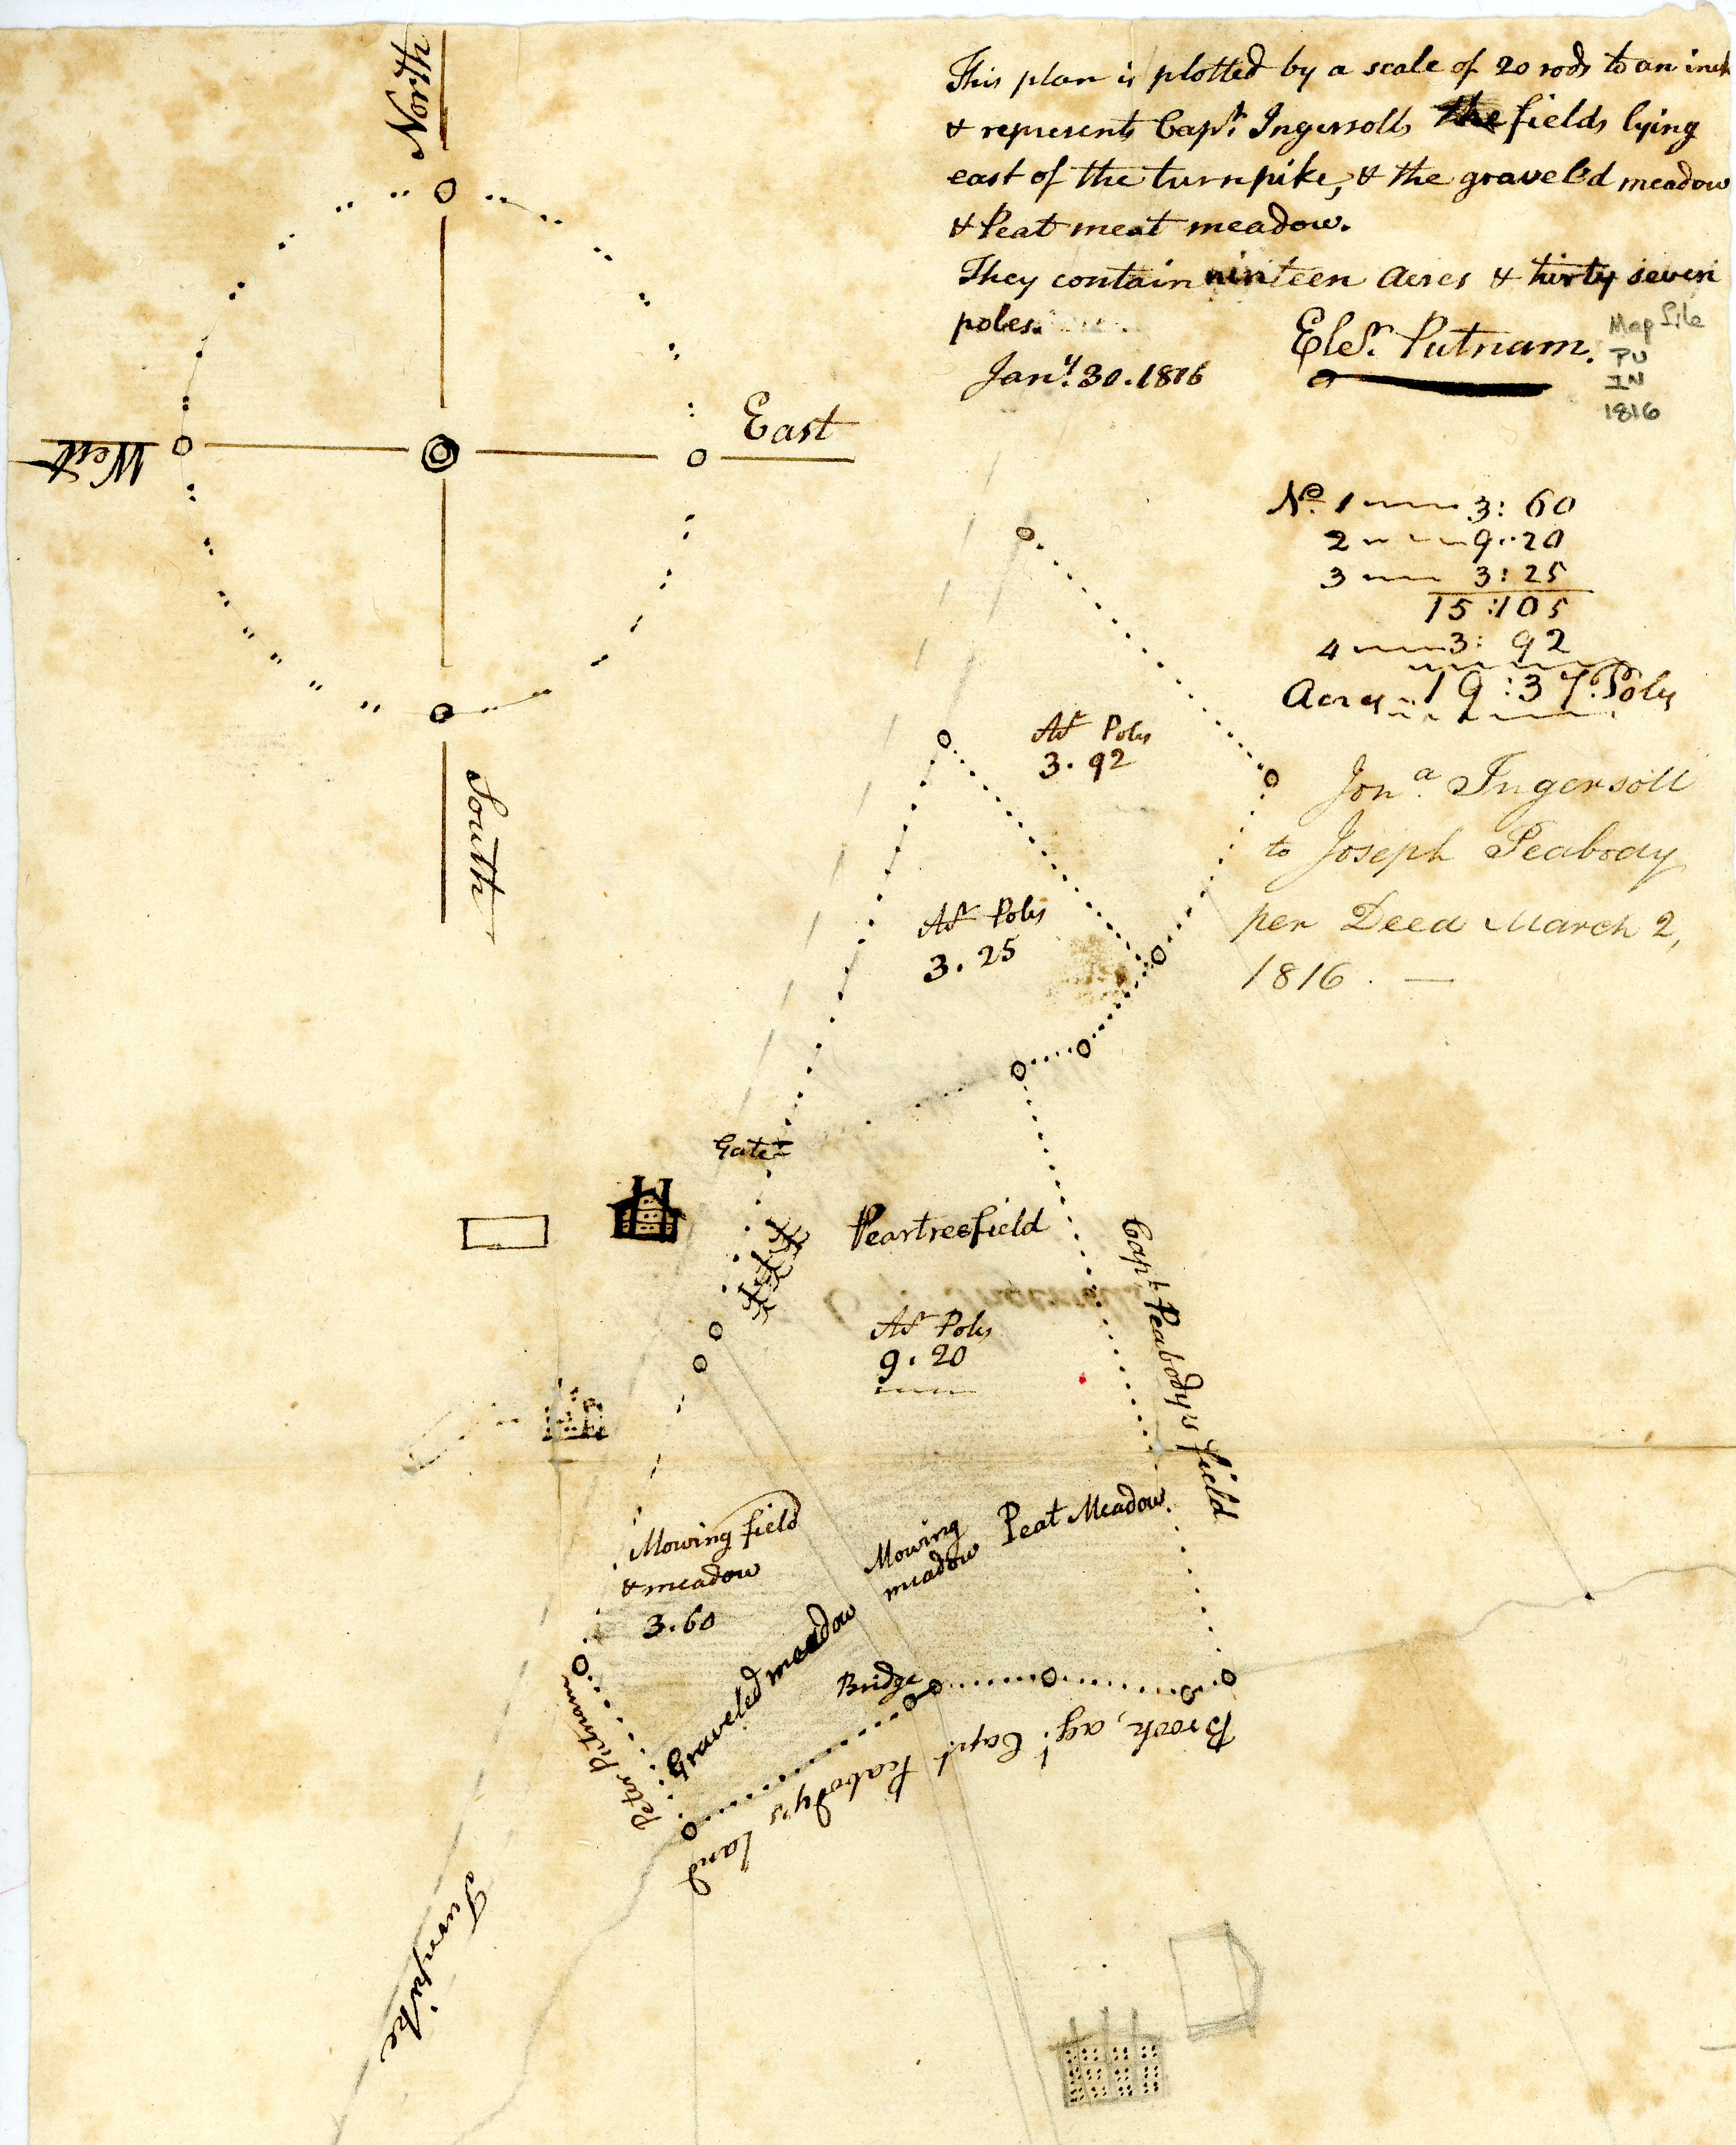 North
West
East
South
This plan is plotted by a scale of 20 rods to an inch
& represents Capt. Ingersolls the fields lying
east of the turnpike, & the gravel'd meadow
& Peat meat meadow.
They contain ninteen Acres & thirty seven
poles.
Jany. 30. 1816
Elesr. Putnam.
Map file
PU
IN
1816
No. 1 3: 60
2 9..20
3 3:25
15:105
4 3: 92
Acres 19:37. Poles
Jona. Ingersoll
to Joseph Peabody
per Deed March 2,
1816. —
Ar Poles
3. 92
Ar Poles
3. 25
Gate
Peartreefield
Ar Poles
9. 20
Capt. Peabody's field
Mowing field
& meadow
3.60
Mowing
meadow
Peat Meadow.
Graveled meadow
Bridge
Peter Putnams
Brook, agt. Capt. Peabody's land
Turnpike